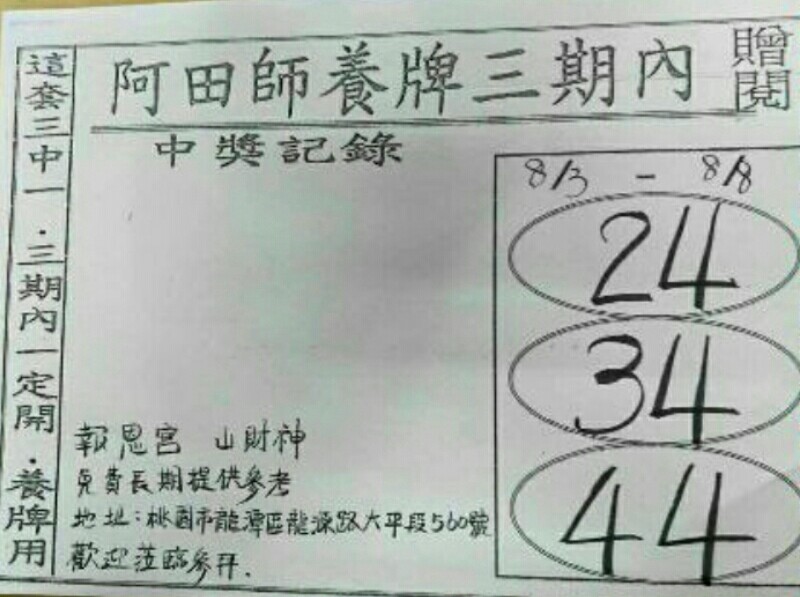 阿田師養牌三期內
贈閱
這套三中一．三期內一定開．養牌用
中獎記錄
8/3 - 8/8
24
34
44
報恩宮 山財神
免費長期提供參考
地址:桃園市龍潭區龍源路大平段560號
歡迎蒞臨參拜.